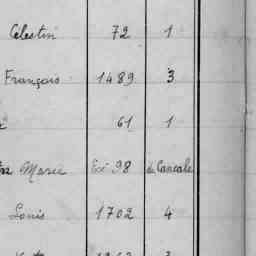 Célestin 72 1
François 1489 3
61 1
Marie Exé 98 de Cancale
Louis 1702 4